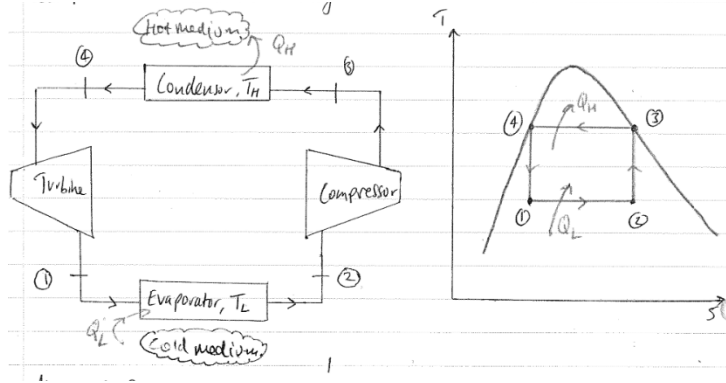 Hot medium
Q_H
④
③
Condensor, T_H
Turbine
Compressor
①
②
Evaporator, T_L
Q_L
Cold medium
T
④
③
Q_H
①
②
Q_L
S